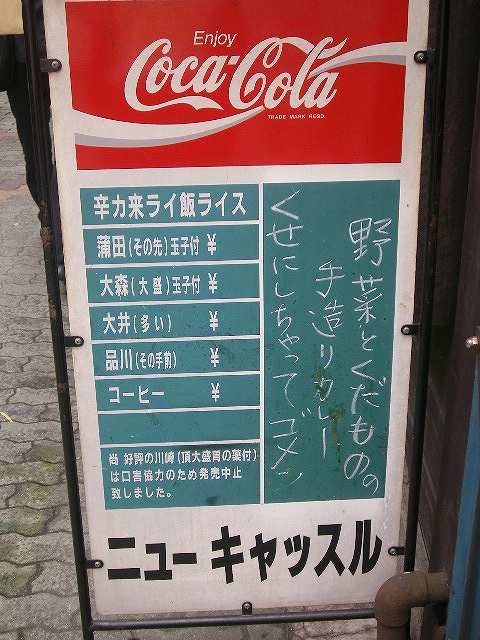 Enjoy
Coca-Cola
TRADE MARK REGD.
辛カ来ライ飯ライス
蒲田(その先)玉子付 ¥
大森(大盛)玉子付 ¥
大井(多い) ¥
品川(その手前) ¥
コーヒー ¥
尚 好評の川崎(頂大盛胃の薬付)
は口害協力のため発売中止
致しました。
野菜とくだものの
手造りカレー
くせにしちゃってゴメン
ニューキャッスル